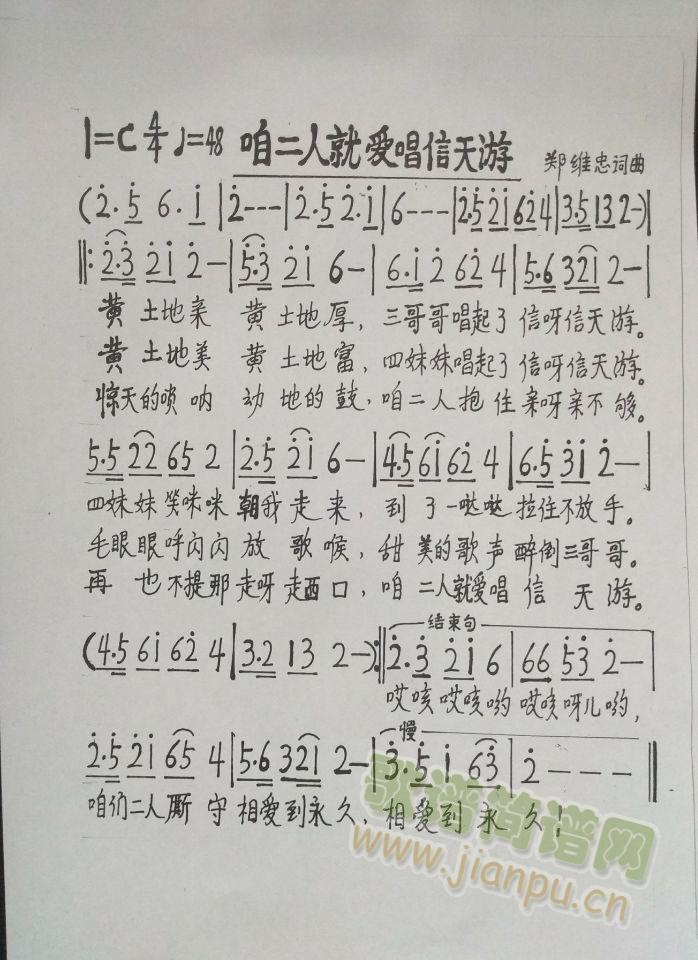 1=C 4/4 ♩=48 咱二人就爱唱信天游 郑维忠词曲
(2̇·5̇ 6·i|2̇---|2̇·5̇ 2̇·i|6---|2̇·5̇ 2̇i 62̇4|3·5 13 2-)|
‖:2̇·3̇ 2̇i 2̇-|5̇·3̇ 2̇i 6-|6·i 2̇ 62̇ 4|5·6 321 2-|
黄土地亲 黄土地厚，三哥哥唱起了信呀信天游。
黄土地美 黄土地富，四妹妹唱起了信呀信天游。
惊天的唢呐 动地的鼓，咱二人抱住亲呀亲不够。
5·5 22 65 2|2̇·5̇ 2̇i 6-|4·5 6i 62̇ 4|6·5 3̇i 2̇-|
四妹妹笑咪咪朝我走来，到了一哒哒拉住不放手。
毛眼眼呼闪闪放歌喉，甜美的歌声醉倒三哥哥。
再也不提那走呀走西口，咱二人就爱唱信天游。
(4·5 6i 62̇ 4|3·2 13 2-):‖
结束句
2̇·3̇ 2̇i 6|66 5̇3̇ 2̇-|
哎咳哎咳哟哎咳呀儿哟，
慢
2̇·5̇ 2̇i 65 4|5·6 321 2-|3̇·5̇ i 63̇|2̇---‖
咱们二人厮守相爱到永久，相爱到永久！
歌谱简谱网
www.jianpu.cn